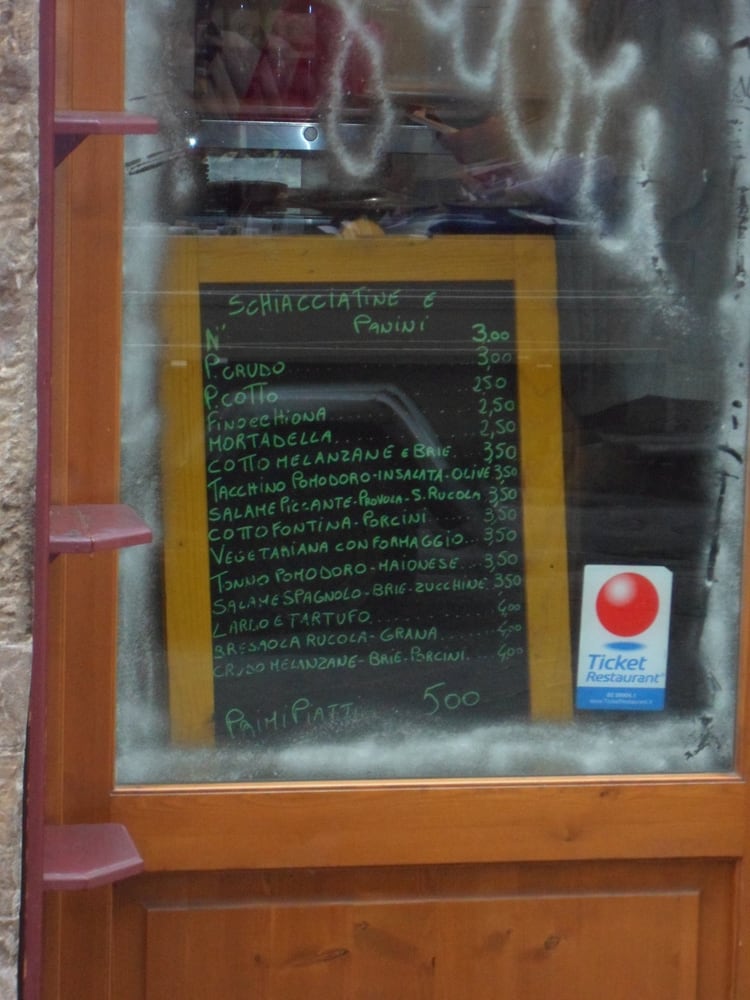 SCHIACCIATINE E
PANINI
N' 3.00
P CRUDO 3,00
P COTTO 2 50
FINOCCHIONA 2,50
MORTADELLA 2,50
COTTO MELANZANE E BRIE 3 50
TACCHINO POMODORO-INSALATA-OLIVE 3 50
SALAME PICCANTE-PROVOLA-S.RUCOLA 3,50
COTTO FONTINA-PORCINI 3,50
VEGETARIANA CON FORMAGGIO 3,50
TONNO POMODORO-MAIONESE 3,50
SALAME SPAGNOLO-BRIE-ZUCCHINE 3 50
LARDO E TARTUFO 4,00
BRESAOLA RUCOLA-GRANA 4,00
CRUDO MELANZANE-BRIE-PORCINI 4,00
PRIMI PIATTI 5 00
Ticket
Restaurant®
www.TicketRestaurant.it